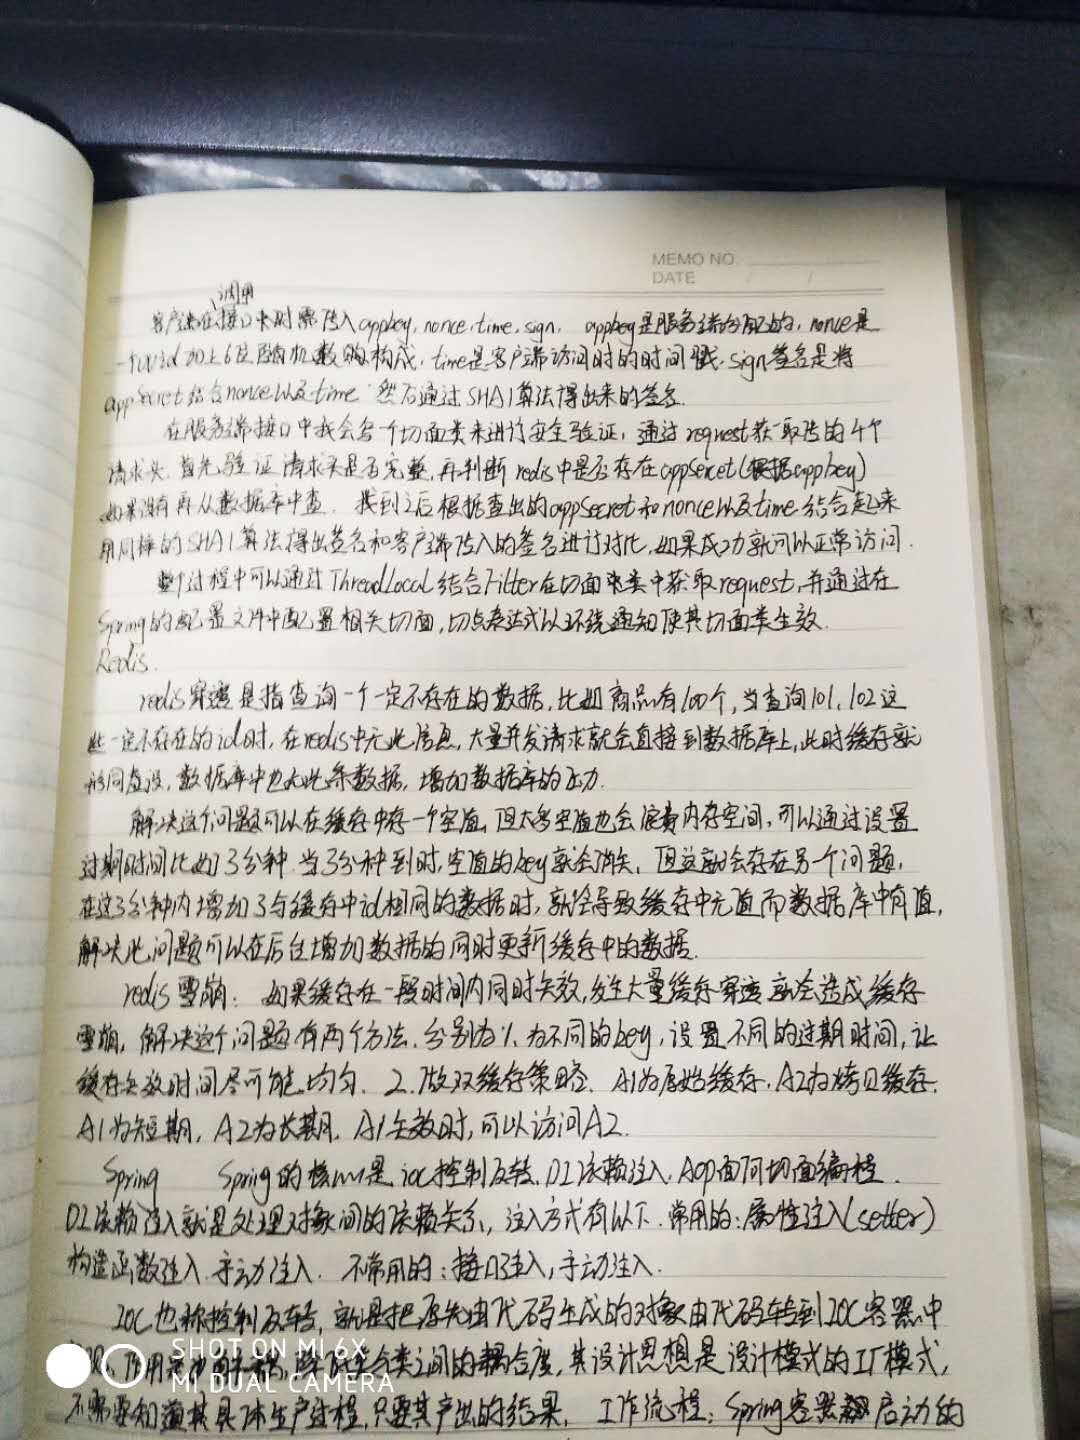 MEMO NO.
DATE / /
调用
客户端在接口时需传入appkey, nonce, time, sign. appkey是服务端分配的, nonce是
uuid加上6位随机数构成, time是客户端访问时的时间戳. sign签名是将
appSecret结合nonce以及time 然后通过SHA1算法得出来的签名.
在服务端接口中我会写一个切面类来进行安全验证, 通过request获取传的4个
请求头. 首先验证请求头是否完整, 再判断redis中是否存在appSecret(根据appkey)
如果没有再从数据库中查. 找到之后根据查出的appSecret和nonce以及time结合起来
用同样的SHA1算法得出签名和客户端传入的签名进行对比, 如果成功就可以正常访问.
整个过程中可以通过ThreadLocal结合Filter在切面类中获取request, 并通过在
Spring的配置文件中配置相关切面, 切点表达式以环绕通知使其切面类生效.
Redis.
redis穿透是指查询一个一定不存在的数据, 比如商品有100个, 当查询101, 102这
些一定不存在的id时, 在redis中无此信息, 大量并发请求就会直接到数据库上, 此时缓存就
形同虚设, 数据库中也无此条数据, 增加数据库的压力.
解决这个问题可以在缓存中存一个空值, 但太多空值也会浪费内存空间, 可以通过设置
过期时间比如3分钟. 当3分钟到时, 空值的key就会消失. 但这就会存在另一个问题,
在这3分钟内增加了与缓存中id相同的数据时, 就会导致缓存中无值而数据库中有值,
解决此问题可以在后台增加数据的同时更新缓存中的数据.
redis雪崩: 如果缓存在一段时间内同时失效, 发生大量缓存穿透就会造成缓存
雪崩, 解决这个问题有两个方法. 分别为 1. 为不同的key, 设置不同的过期时间, 让
缓存失效时间尽可能均匀. 2. 做双缓存策略. A1为原始缓存, A2为拷贝缓存.
A1为短期, A2为长期. A1失效时, 可以访问A2.
Spring Spring的核心是ioc控制反转, DI依赖注入, AOP面向切面编程.
DI依赖注入就是处理对象间的依赖关系, 注入方式有以下. 常用的: 属性注入(setter)
构造函数注入. 手动注入. 不常用的: 接口注入, 手动注入.
IOC也称控制反转, 就是把原先由代码生成的对象由代码转到IOC容器中
类之间的耦合度, 其设计思想是设计模式的工厂模式,
不需要知道其具体生产过程, 只要其产出的结果. 工作流程: Spring容器启动的
SHOT ON MI 6X
MI DUAL CAMERA